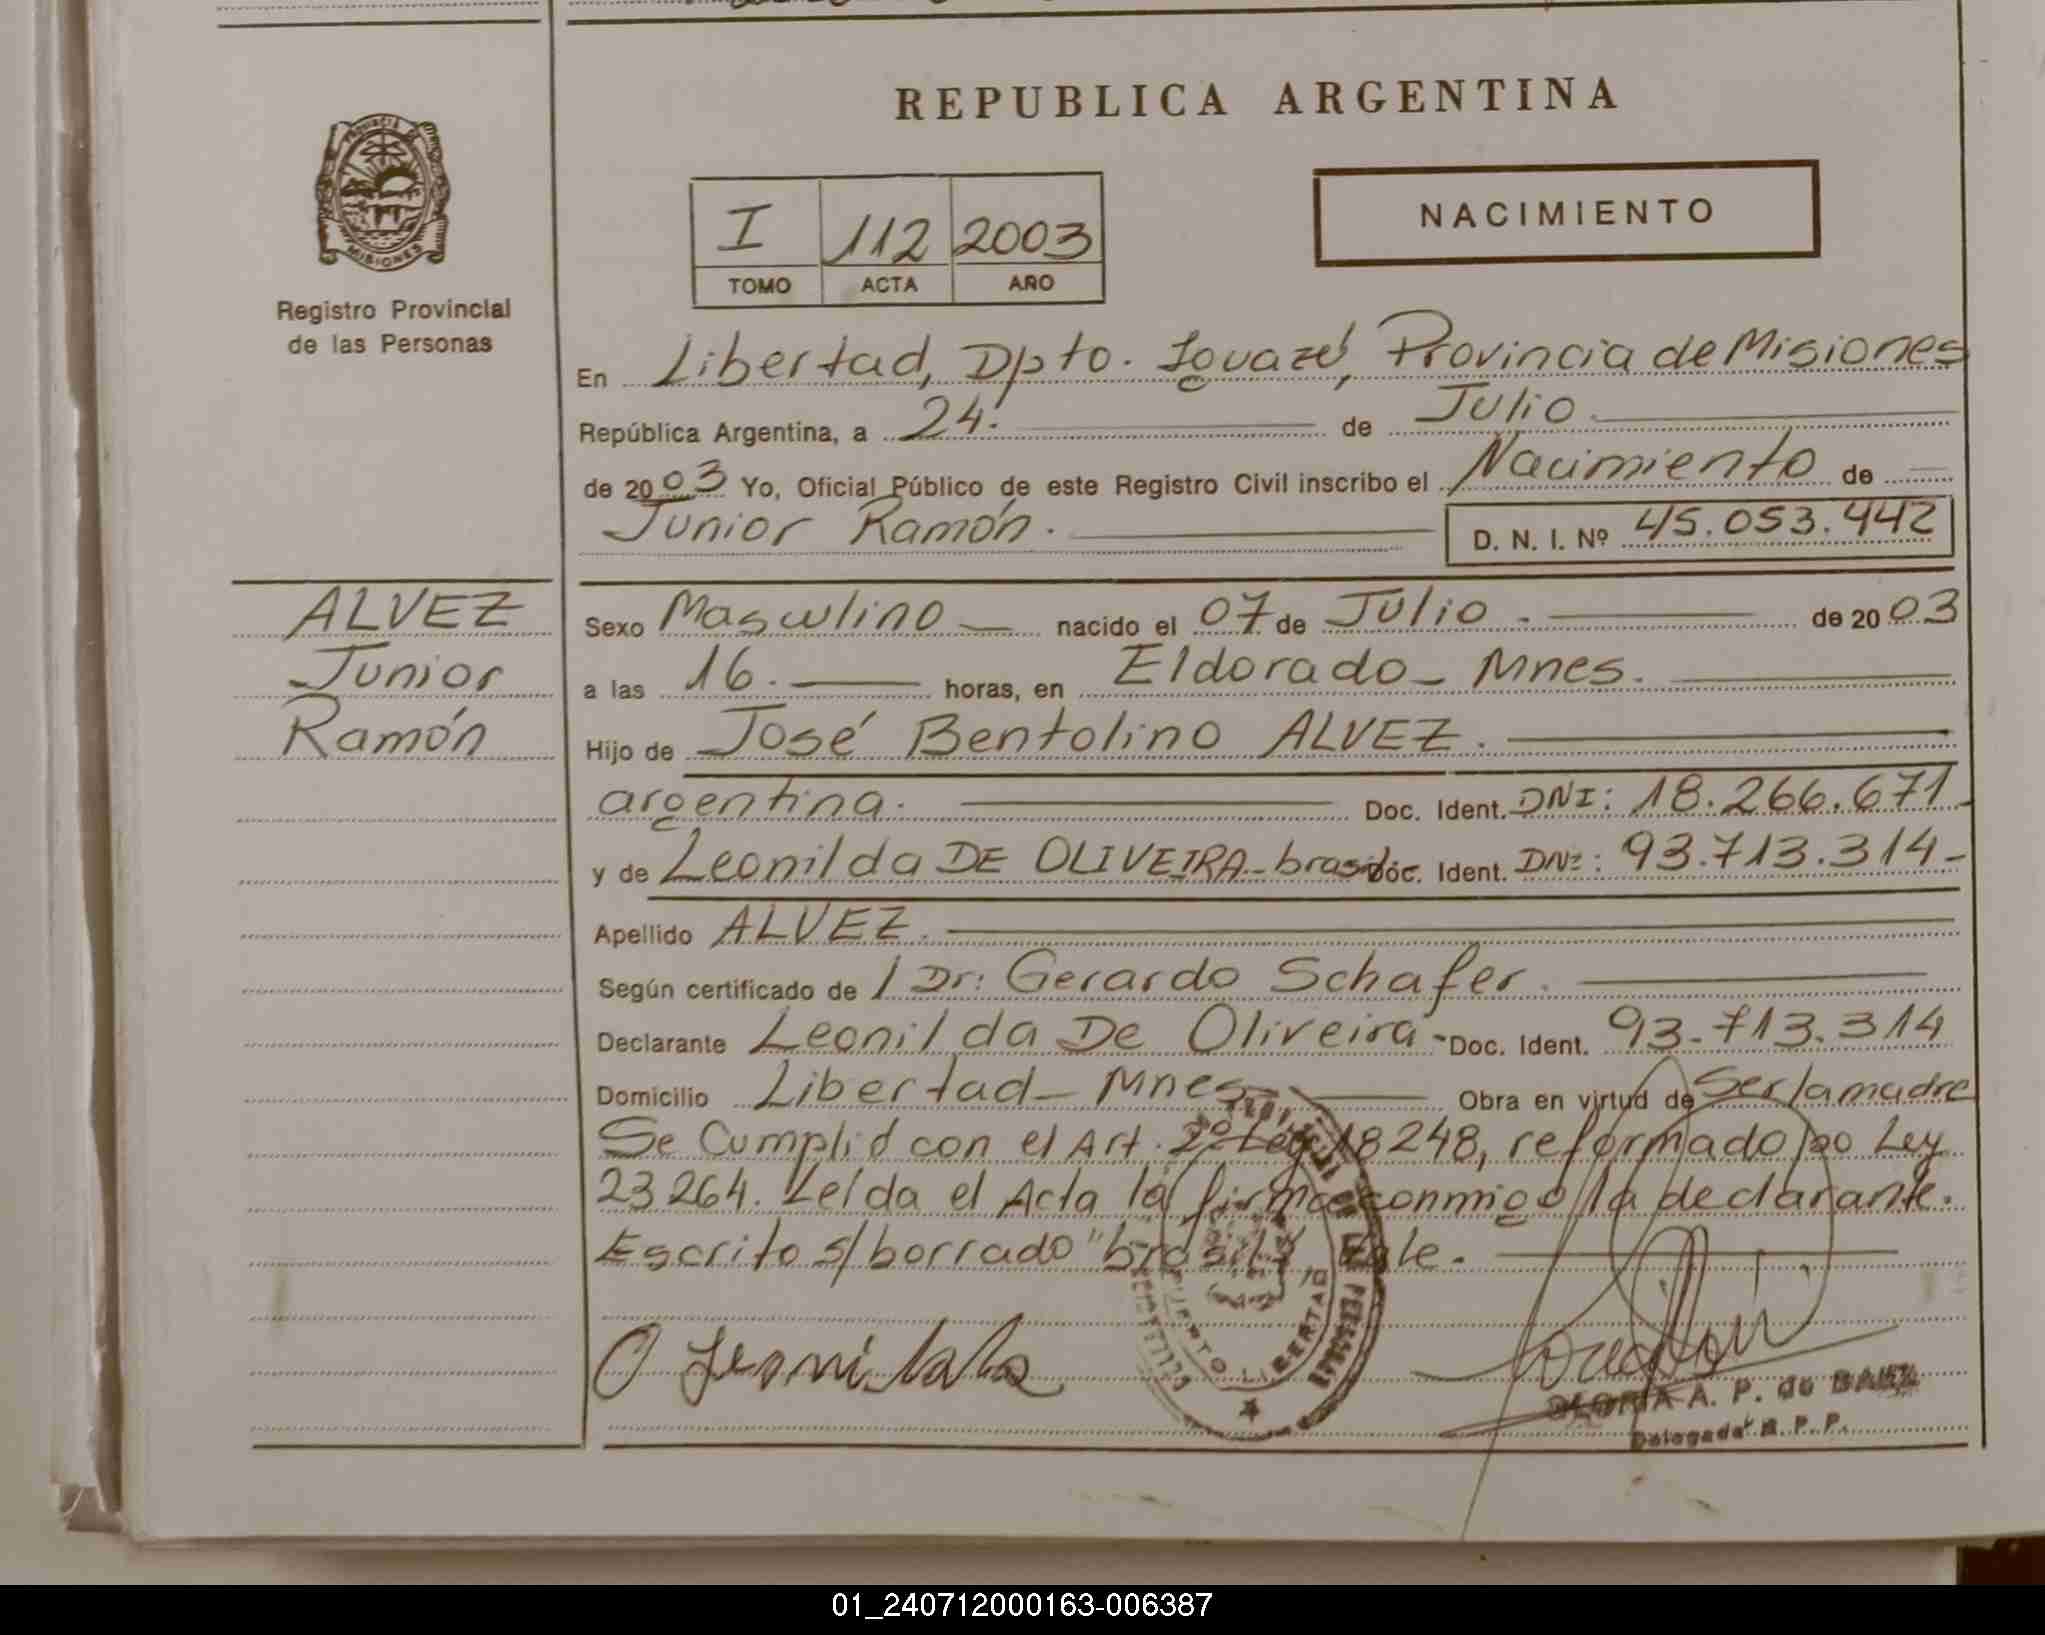 REPUBLICA ARGENTINA
PROVINCIA DE
MISIONES
Registro Provincial
de las Personas
I 112 2003
TOMO ACTA AÑO
NACIMIENTO
En Libertad, Dpto. Iguazú, Provincia de Misiones
República Argentina, a 24. de Julio.
de 2003 Yo, Oficial Público de este Registro Civil inscribo el Nacimiento de
Junior Ramón. D. N. I. Nº 45.053.442
ALVEZ
Junior
Ramón
Sexo Masculino nacido el 07 de Julio. de 2003
a las 16. horas, en Eldorado - Mnes.
Hijo de José Bentolino ALVEZ.
argentina. Doc. Ident. DNI: 18.266.671
y de Leonilda DE OLIVEIRA - brasil. Doc. Ident. DNI: 93.713.314-
Apellido ALVEZ.
Según certificado de / Dr: Gerardo Schafer.
Declarante Leonilda De Oliveira - Doc. Ident. 93.713.314
Domicilio Libertad - Mnes. Obra en virtud de Ser la madre
Se Cumplió con el Art. 2º Ley 18248, reformado po Ley
23264. Leída el Acta la firma conmigo la declarante.
Escrito s/borrado "brasil" Vale.
PUERTO LIBERTAD
GLORIA A. P. de BAEZ
Delegada R. P. P.
01_240712000163-006387